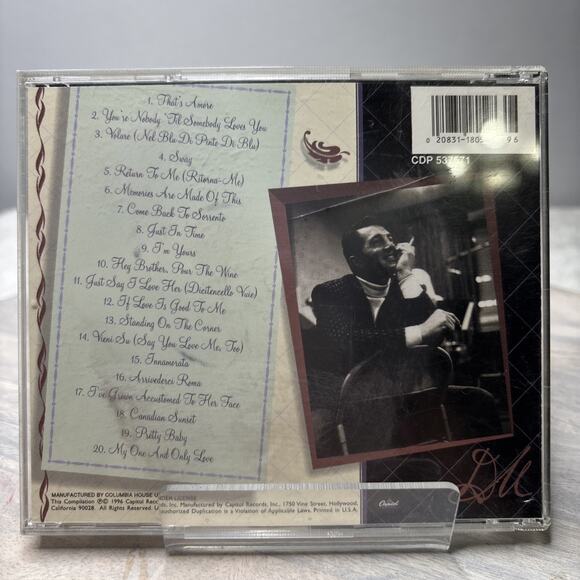 1. That's Amore
2. You're Nobody 'Til Somebody Loves You
3. Volare (Nel Blu Di Pinto Di Blu)
4. Sway
5. Return To Me (Ritorna-Me)
6. Memories Are Made Of This
7. Come Back To Sorrento
8. Just In Time
9. I'm Yours
10. Hey Brother, Pour The Wine
11. Just Say I Love Her (Dicitencello Vuie)
12. If Love Is Good To Me
13. Standing On The Corner
14. Vieni Su (Say You Love Me, Too)
15. Innamorata
16. Arrivederci Roma
17. I've Grown Accustomed To Her Face
18. Canadian Sunset
19. Pretty Baby
20. My One And Only Love
0 20831-180 96
CDP 537571
DM
MANUFACTURED BY COLUMBIA HOUSE UNDER LICENSE
This Compilation ℗© 1996 Capitol Records, Inc. Manufactured by Capitol Records, Inc., 1750 Vine Street, Hollywood,
California 90028. All Rights Reserved. Unauthorized Duplication is a Violation of Applicable Laws. Printed in U.S.A.
Capitol